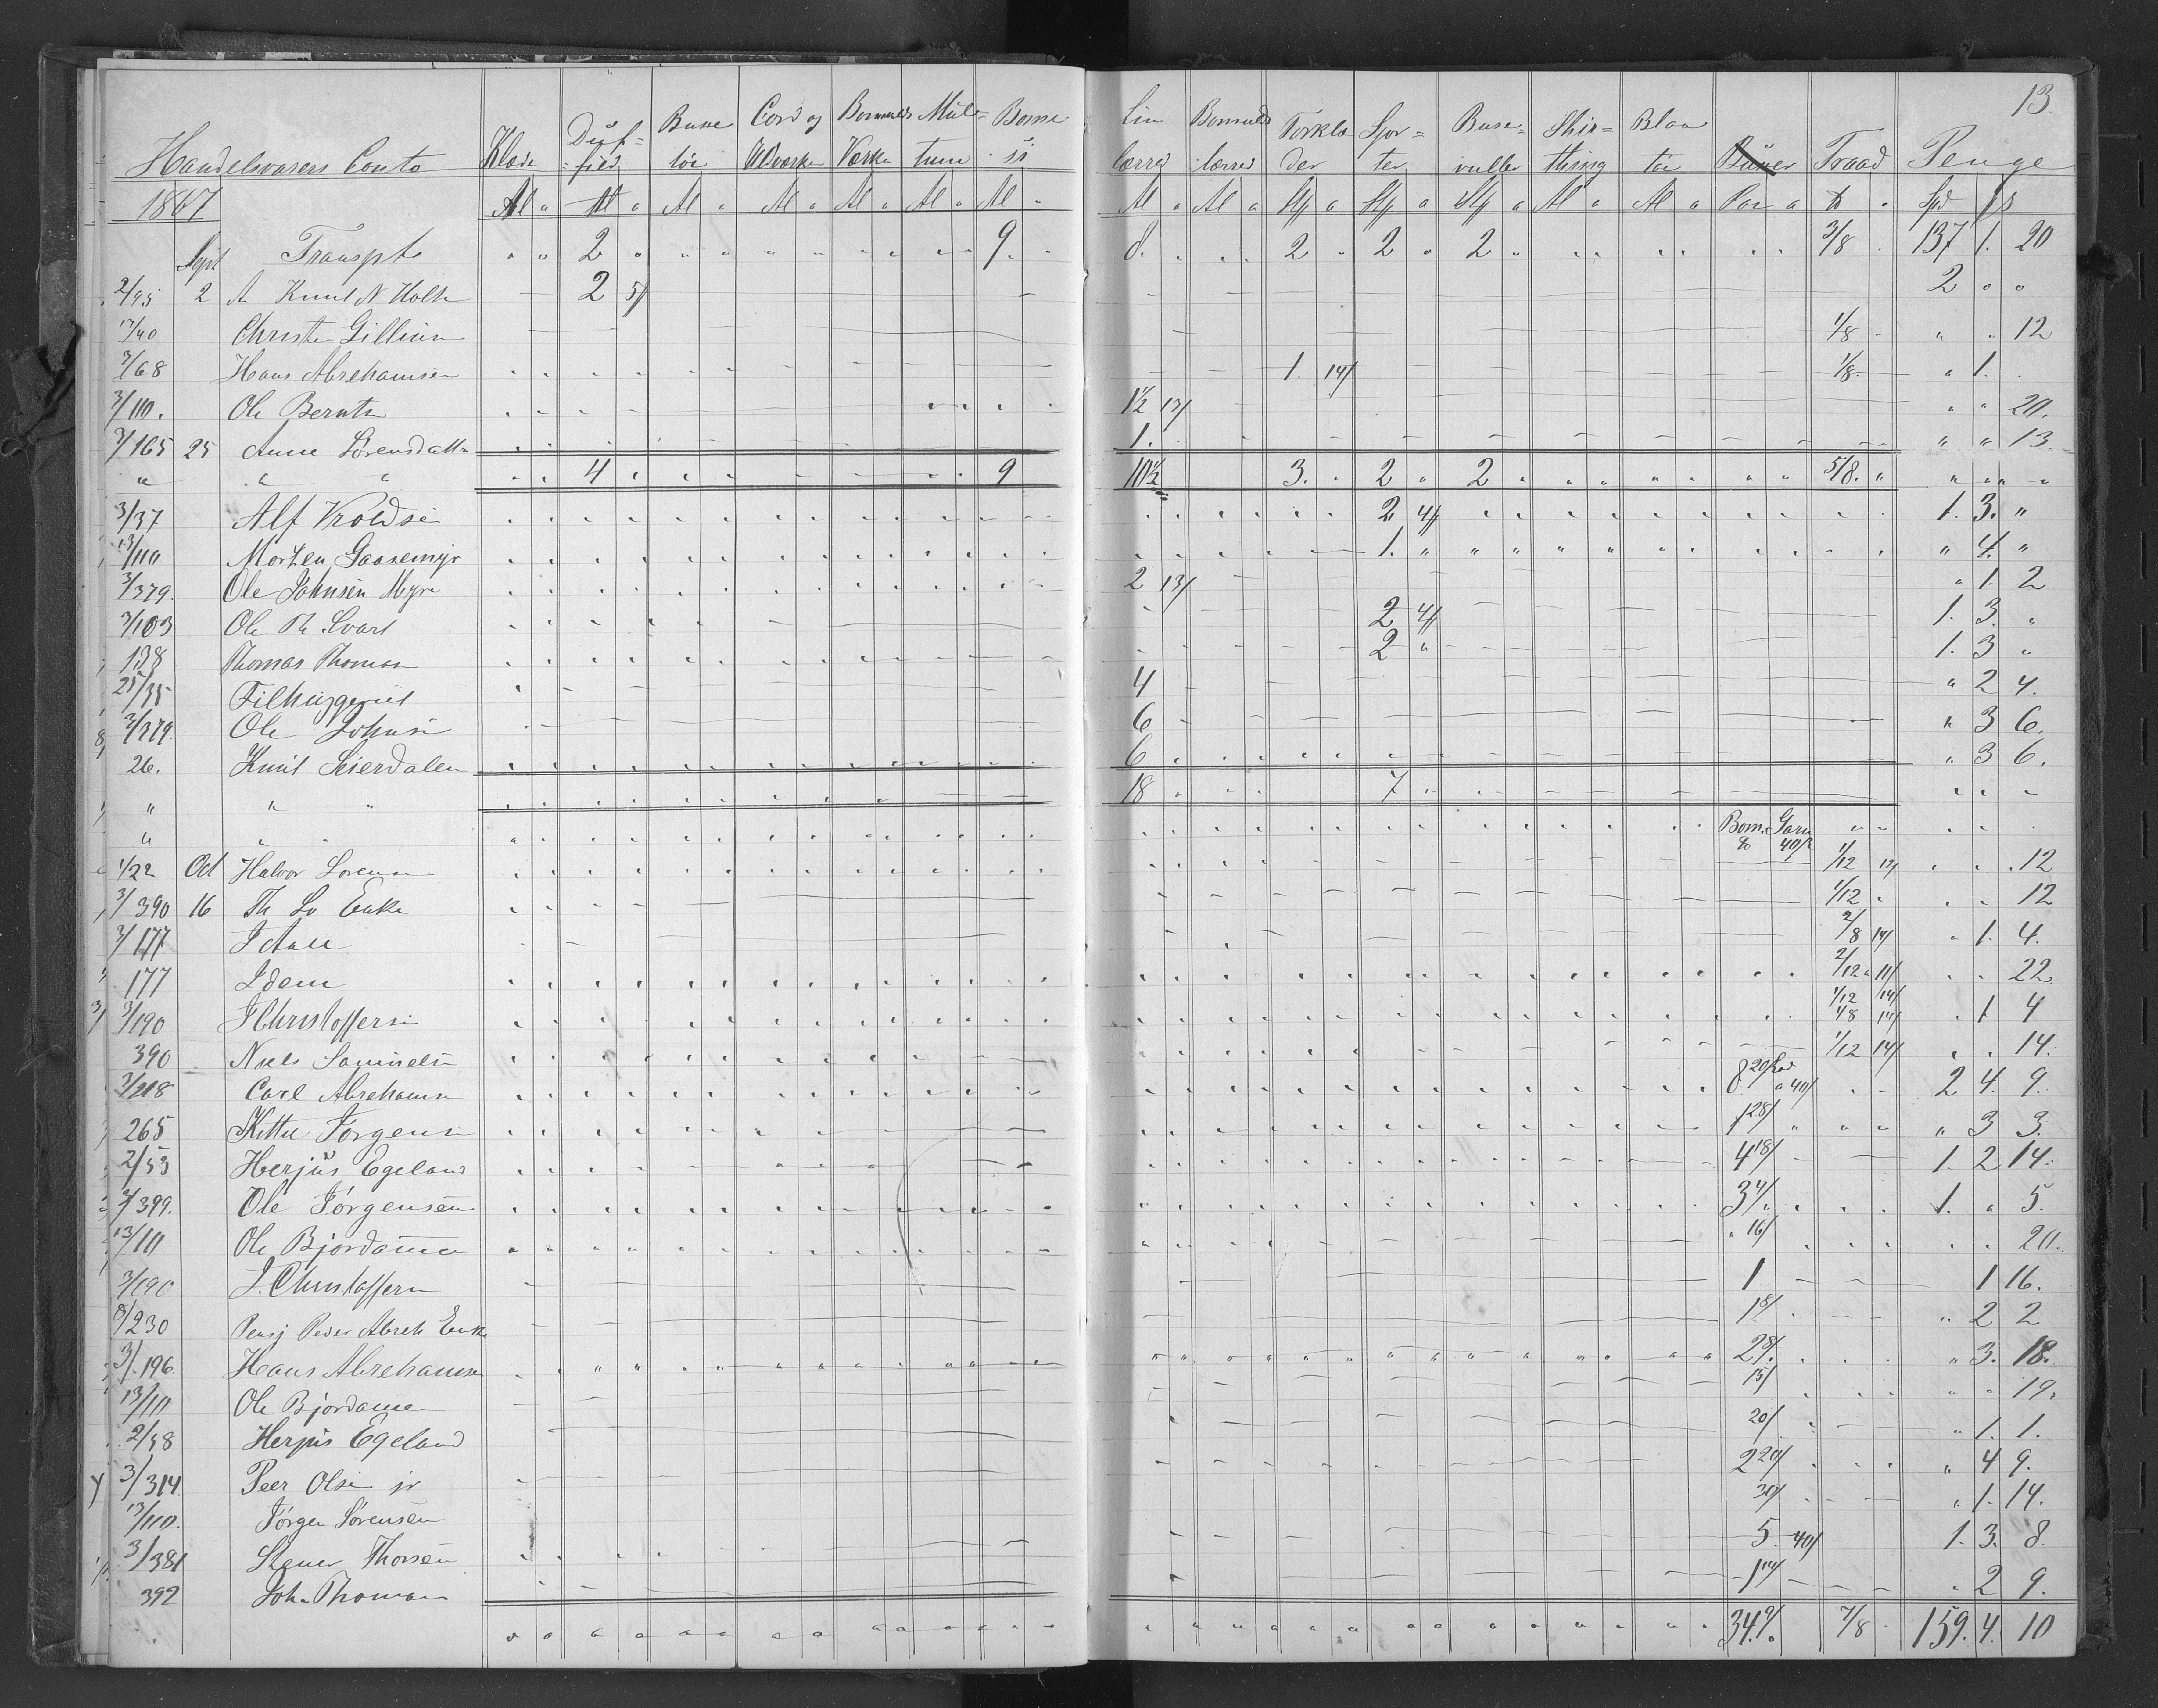 13.
Handelsvarers Conto Klæde Düf- fied Buxe töi Cord og Ulværke Bomulds Værke Mül- tum Bome- si Lin lærred Bomulds lærred Törklæ der Sjor- ter Buse- ruller Shir- thing Blaa töi Buxer Traad Penge
1867 Al " Al " Al " Al " Al " Al " Al " Al " Al " St " St " St " Al " Al " Par " ℔ " Spd ß
Sept Transpt " " 2 " " " 9. " 8. 2 " 2 " 2 " 3/8 137 1. 20
2/95 2 A Knut N Holte 2 5/ 2 " "
13/40 Christen Gillius 1/8 " " 12
3/68 Hans Abrehamsen 1. 14/ 1/8 " 1.
3/110. Ole Berntn 1½ 13/ " " 20.
3/165 25 Anne Sörensdattr 1. " " 13.
" " " 4 9 10½ 3. 2 2 5/8. " " "
3/37 Alf Vroldsen 2 4/ 1. 3. "
13/110 Morten Gaasemyr 1. " " 4. "
3/379. Ole Johnsen Myre 2 13/ " 1. 2
3/103 Ole Th. Svart 2 4/ 1. 3. "
138 Thomas Thomsn 2 " 1. 3 "
25/35 Filhuggeriet 4 " 2 4.
3/379. Ole Johnsen 6 " 3 6.
26. Knut Seierdalen 6 " 3 6.
" " " 18 7
" " " Bom. Garn 40/
1/22 Oct Halvor Sörensen 1/12 12/ 12
3/390 16 Th Lo Enke 1/12 " 12
3/177 J Aall 2/8 14/ " 1. 4.
177 Idem 2/12 " 11/ 22.
3/190 J Christoffersen 1/12 14/ 1/8 14/ 1 4
390 Niels Samuelsen 1/12 14/ 14.
3/218 Carl Abrehamsn 8 20/ Lod a 40/ 2 4. 9.
265 Kittil Jörgensn 1 28/ " " " " 3 3.
2/53 Herjüs Egeland 4 18/ 1. 2 14.
3/399. Ole Jörgensen 3 4/ 1. " 5.
13/10 Ole Bjordamen " 16/ 20.
3/190 J. Christoffersn 1 1 16.
8/230 Pensj Peder Abreh Enke 1 8/ " 2 2
3/196 Hans Abrehamsen 2 28/ " 3. 18.
13/10 Ole Bjordamen 15/ " " 19.
2/58 Herjüs Egeland 20/ " 1. 1.
3/314. Peer Olsen jr 2 20/ " 4 9.
13/110. Jörgen Sörensen 30/ " 1. 14.
3/381 Stener Thorsen 5. 40/ 1. 3. 8.
392 Joh. Thomasn 1 14/ 2 9.
34. 9/ 7/8 159. 4. 10